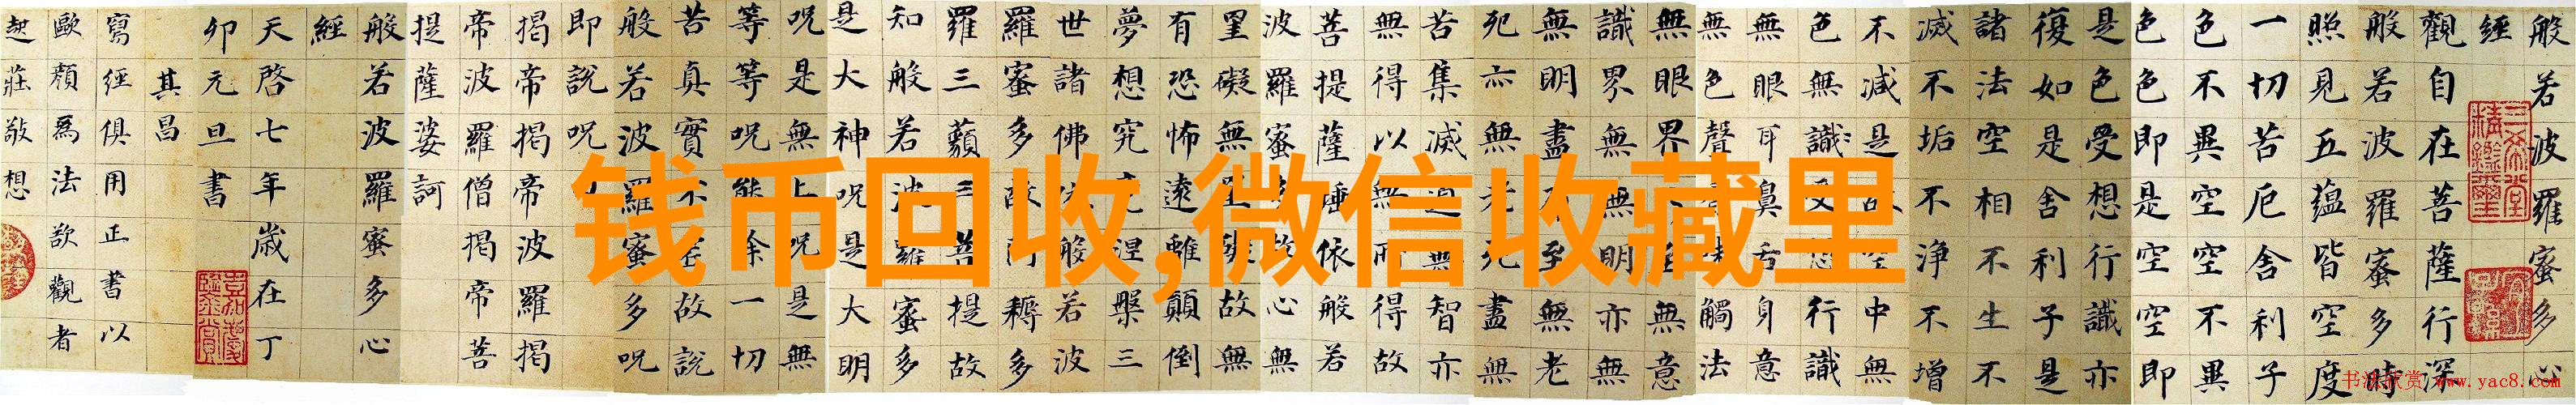 般若波羅蜜多心
經
觀自在菩薩行深
般若波羅蜜多時
照見五蘊皆空度
一切苦厄舍利子
色不異空空不異
色色即是空空即
是色受想行識亦
復如是舍利子是
諸法空相不生不
滅不垢不淨不增
不減是故空中無
色無識受想行識
無眼耳鼻舌身意
無色聲香味觸法
無眼界無意
識界無無明亦無
無明盡乃至無老
死亦無老死盡無
苦集滅道無智亦
無得以無所得故
菩提薩埵依般若
波羅蜜多故心無
罣礙無罣礙故無
有恐怖遠離顛倒
夢想究竟涅槃三
世諸佛依般若波
羅蜜多故阿耨多
羅三藐三菩提故
知般若波羅蜜多
是大神呪是大明
呪是無上呪是無
等等呪能除一切
苦真實不虛故說
般若波羅蜜多呪
即說呪曰
揭帝揭帝波羅揭
帝波羅僧揭帝菩
提薩婆訶
般若波羅蜜多心
經
天啓七年歲在丁
卯元旦書
其昌
寫經俱用正書以
歐顏爲法欲觀者
起莊敬想
钱币回收,微信收藏里
书法欣赏 www.yac8.com